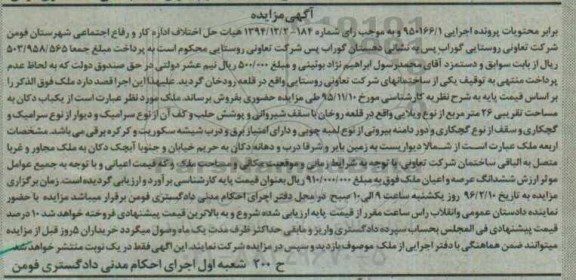 آگهی مزایده
برابر محتویات پرونده اجرایی ۹۵۰۱۶۶/۱ و به موجب رای شماره ۱۸۴-۱۳۹۴/۱۲/۳ هیات حل اختلاف اداره کار و رفاع اجتماعی شهرستان فومن
شرکت تعاونی روستایی گوراب پس به نشانی استان گوراب پس شرکت تعاونی روستایی محکوم است به پرداخت مبلغ جمعا ۵۰۳/۹۵۸/۵۶۵
ریال از بابت سوابق و دستمزد آقای محمدرسول ابراهیم نژاد بوئینی و مبلغ ۵۰۰/۰۰۰ ریال نیم عشر دولتی در حق صندوق دولت که به لحاظ عدم
پرداخت منتهی به توقیف یکی از ساختمانهای شرکت تعاونی روستایی واقع در قلعه رودخان گردید. علیهذا این اجرا قصد دارد ملک فوق الذکر را
بر اساس قیمت پایه به شرح نظریه کارشناسی مورخ ۹۵/۱۱/۱۰ طی مزایده حضوری بفروش برساند. ملک مورد نظر عبارت است از یکباب دکان به
مساحت تقریبی ۲۶ متر مربع از نوع ویلایی واقع در قلعه روخان با سقف شیروانی و پوشش حلب و کف آن از نوع سرامیک و دیوار از نوع سرامیک و
گچکاری و سقف از نوع گچکاری و دور دامنه بیرونی از نوع لمبه چوبی و دارای امتیاز برق و درب شیشه سکوریت و کرکره برقی می باشد. مشخصات
اربعه ملک عبارت است از شمالا دیواریست به زمین بایر و شرقا درب و دهانه دکان به حریم خیابان و جنوبا آبچک دکان به ملک مجاور و غربا
متصل به الباقی ساختمان شرکت تعاونی با توجه به شرایط زمانی و موقعیت مکانی و مساحت ملک و که قیمت اعیانی و با توجه به جمیع عوامل
موثر ارزش ششدانگ عرصه و اعیان ملک فوق به مبلغ ۹۱۰/۰۰۰/۰۰۰ ریال بعنوان قیمت پایه کارشناسی برآورد و ارزیابی گردیده است. زمان برگزاری
مزایده به تاریخ ۹۶/۲/۱۰ روز یکشنبه ساعت ۹ الی ۱۰ صبح در محل دفتر اجرای احکام مدنی دادگستری فومن برقرار میباشد مزایده با حضور
نماینده دادستان عمومی وانقلاب راس ساعت مقرر از قیمت پایه ارزیابی شده شروع و به بالاترین قیمت پیشنهادی فروخته خواهد شد ۱۰ درصد
قیمت پیشنهادی فی المجلس بحساب سپرده دادگستری واریز و مابقی حداکثر ظرف مدت یک ماه وصول میگردد خریداران ۵ روز قبل از مزایده
میتوانند ضمن هماهنگی با دفتر اجرایی از ملک موصوف بازدید و سپس در مزایده شرکت نمایند. این آگهی فقط در یک نوبت منتشر خواهد شد
ح ۲۰۰ شعبه اول اجرای احکام مدنی دادگستری فومن